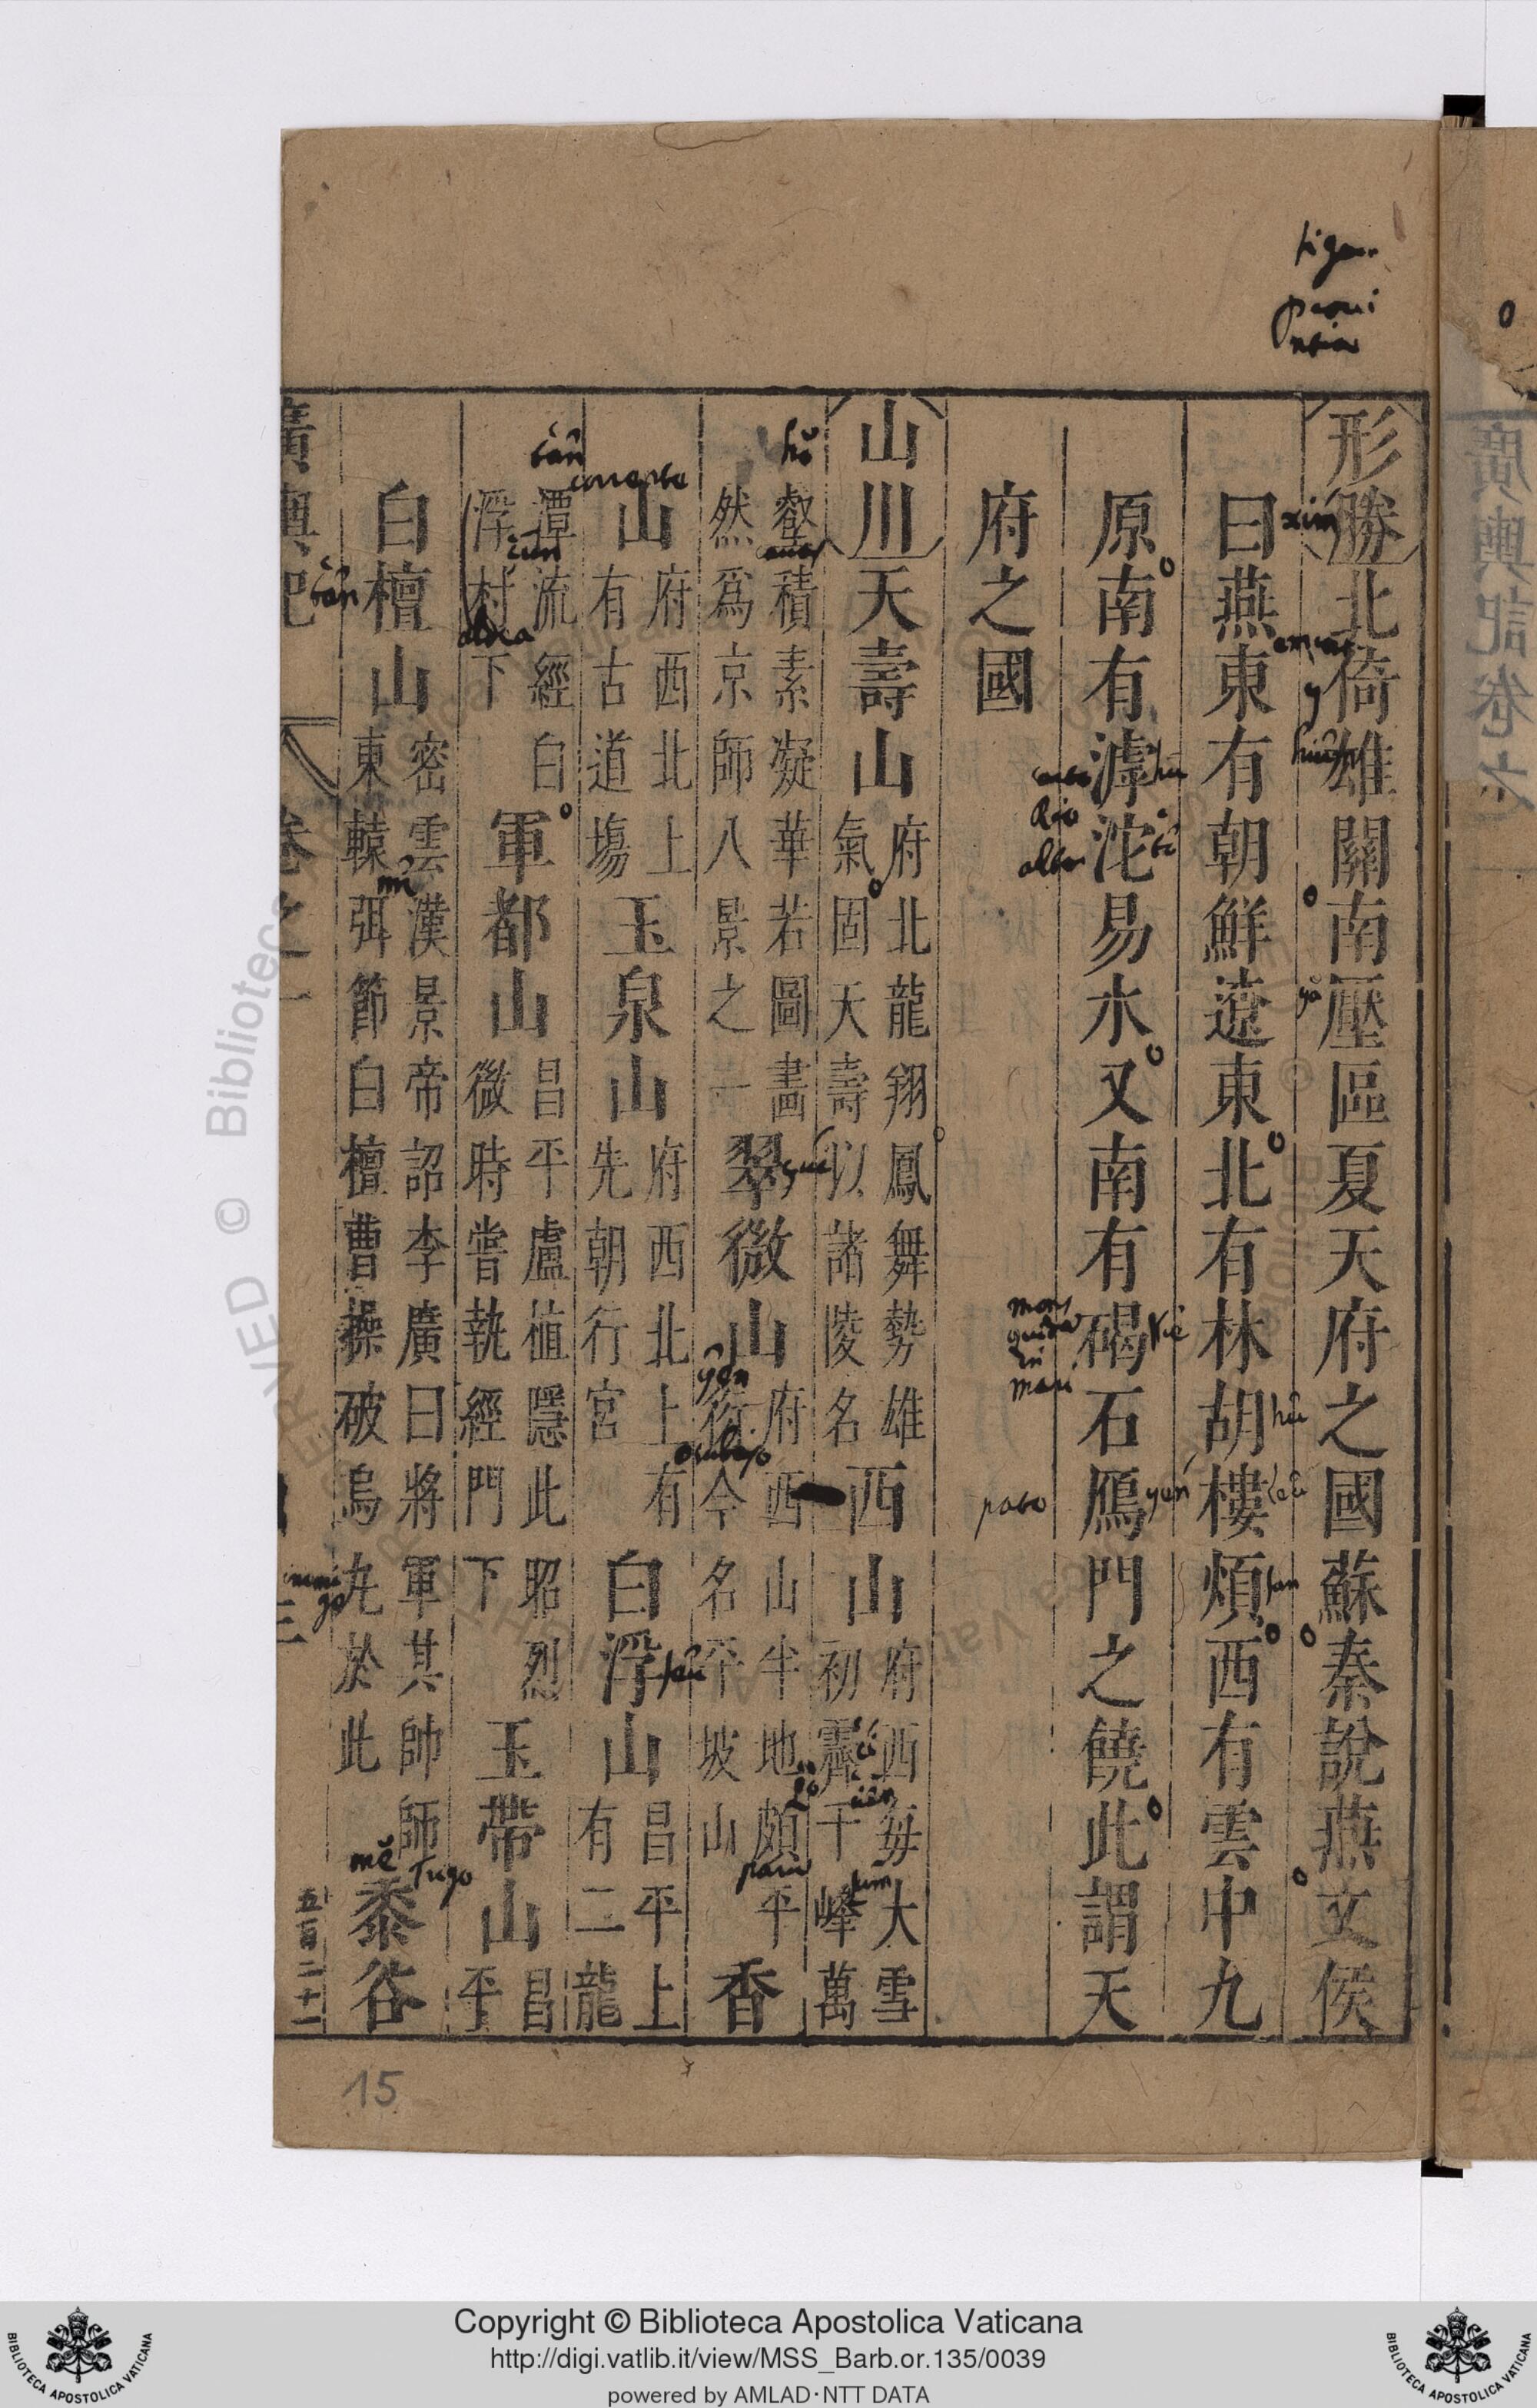 形勝北倚雄關南壓區夏天府之國蘇秦說燕文侯
曰燕東有朝鮮遼東北有林胡樓煩西有雲中九
原南有滹沱易水又南有碣石鴈門之饒此謂天
府之國
山川天壽山府北龍翔鳳舞勢雄
氣固天壽以諸陵名
西山府西每大雪
初霽千峰萬
壑積素凝華若圖畫
然為京師八景之一
翠微山府西山半地頗平
名平坡山
香
山府西北上
有古道場
玉泉山府西北上有
先朝行宮
白浮山昌平上
有二龍
潭流經白
浮村下
軍都山昌平盧植隱此昭烈
微時嘗執經門下
玉帶山昌
平
白檀山密雲漢景帝詔李廣曰將軍其帥師
東轅弭節白檀曹操破烏丸於此
黍谷
廣輿記
卷之一
三
五百二十一
xim
y
hiûm
yǎ
hû
leû
fan
hu
tô
Kiě
yen
mons
in
mari
pato
hǒ
feû
tân
cun
mi
mě
Tugo
15
廣輿記卷之
Copyright © Biblioteca Apostolica Vaticana
http://digi.vatlib.it/view/MSS_Barb.or.135/0039
powered by AMLAD·NTT DATA
BIBLIOTECA APOSTOLICA VATICANA
BIBLIOTECA APOSTOLICA VATICANA